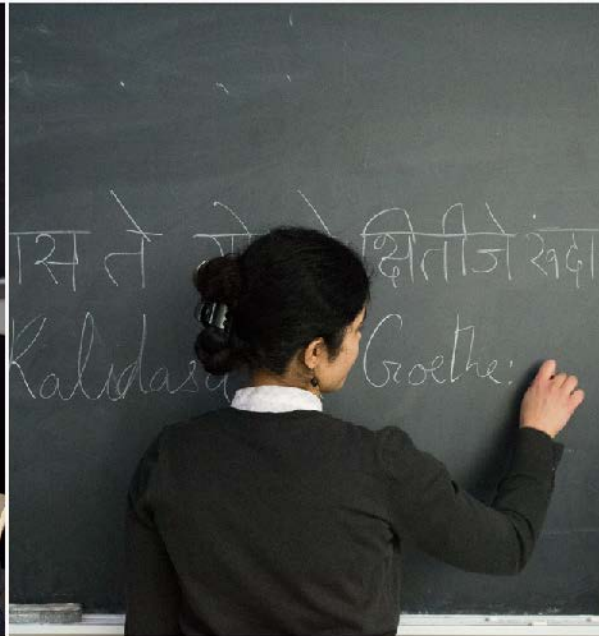 ास ते गोटे क्षितीजे रुंदा
Kalidasa Goethe: